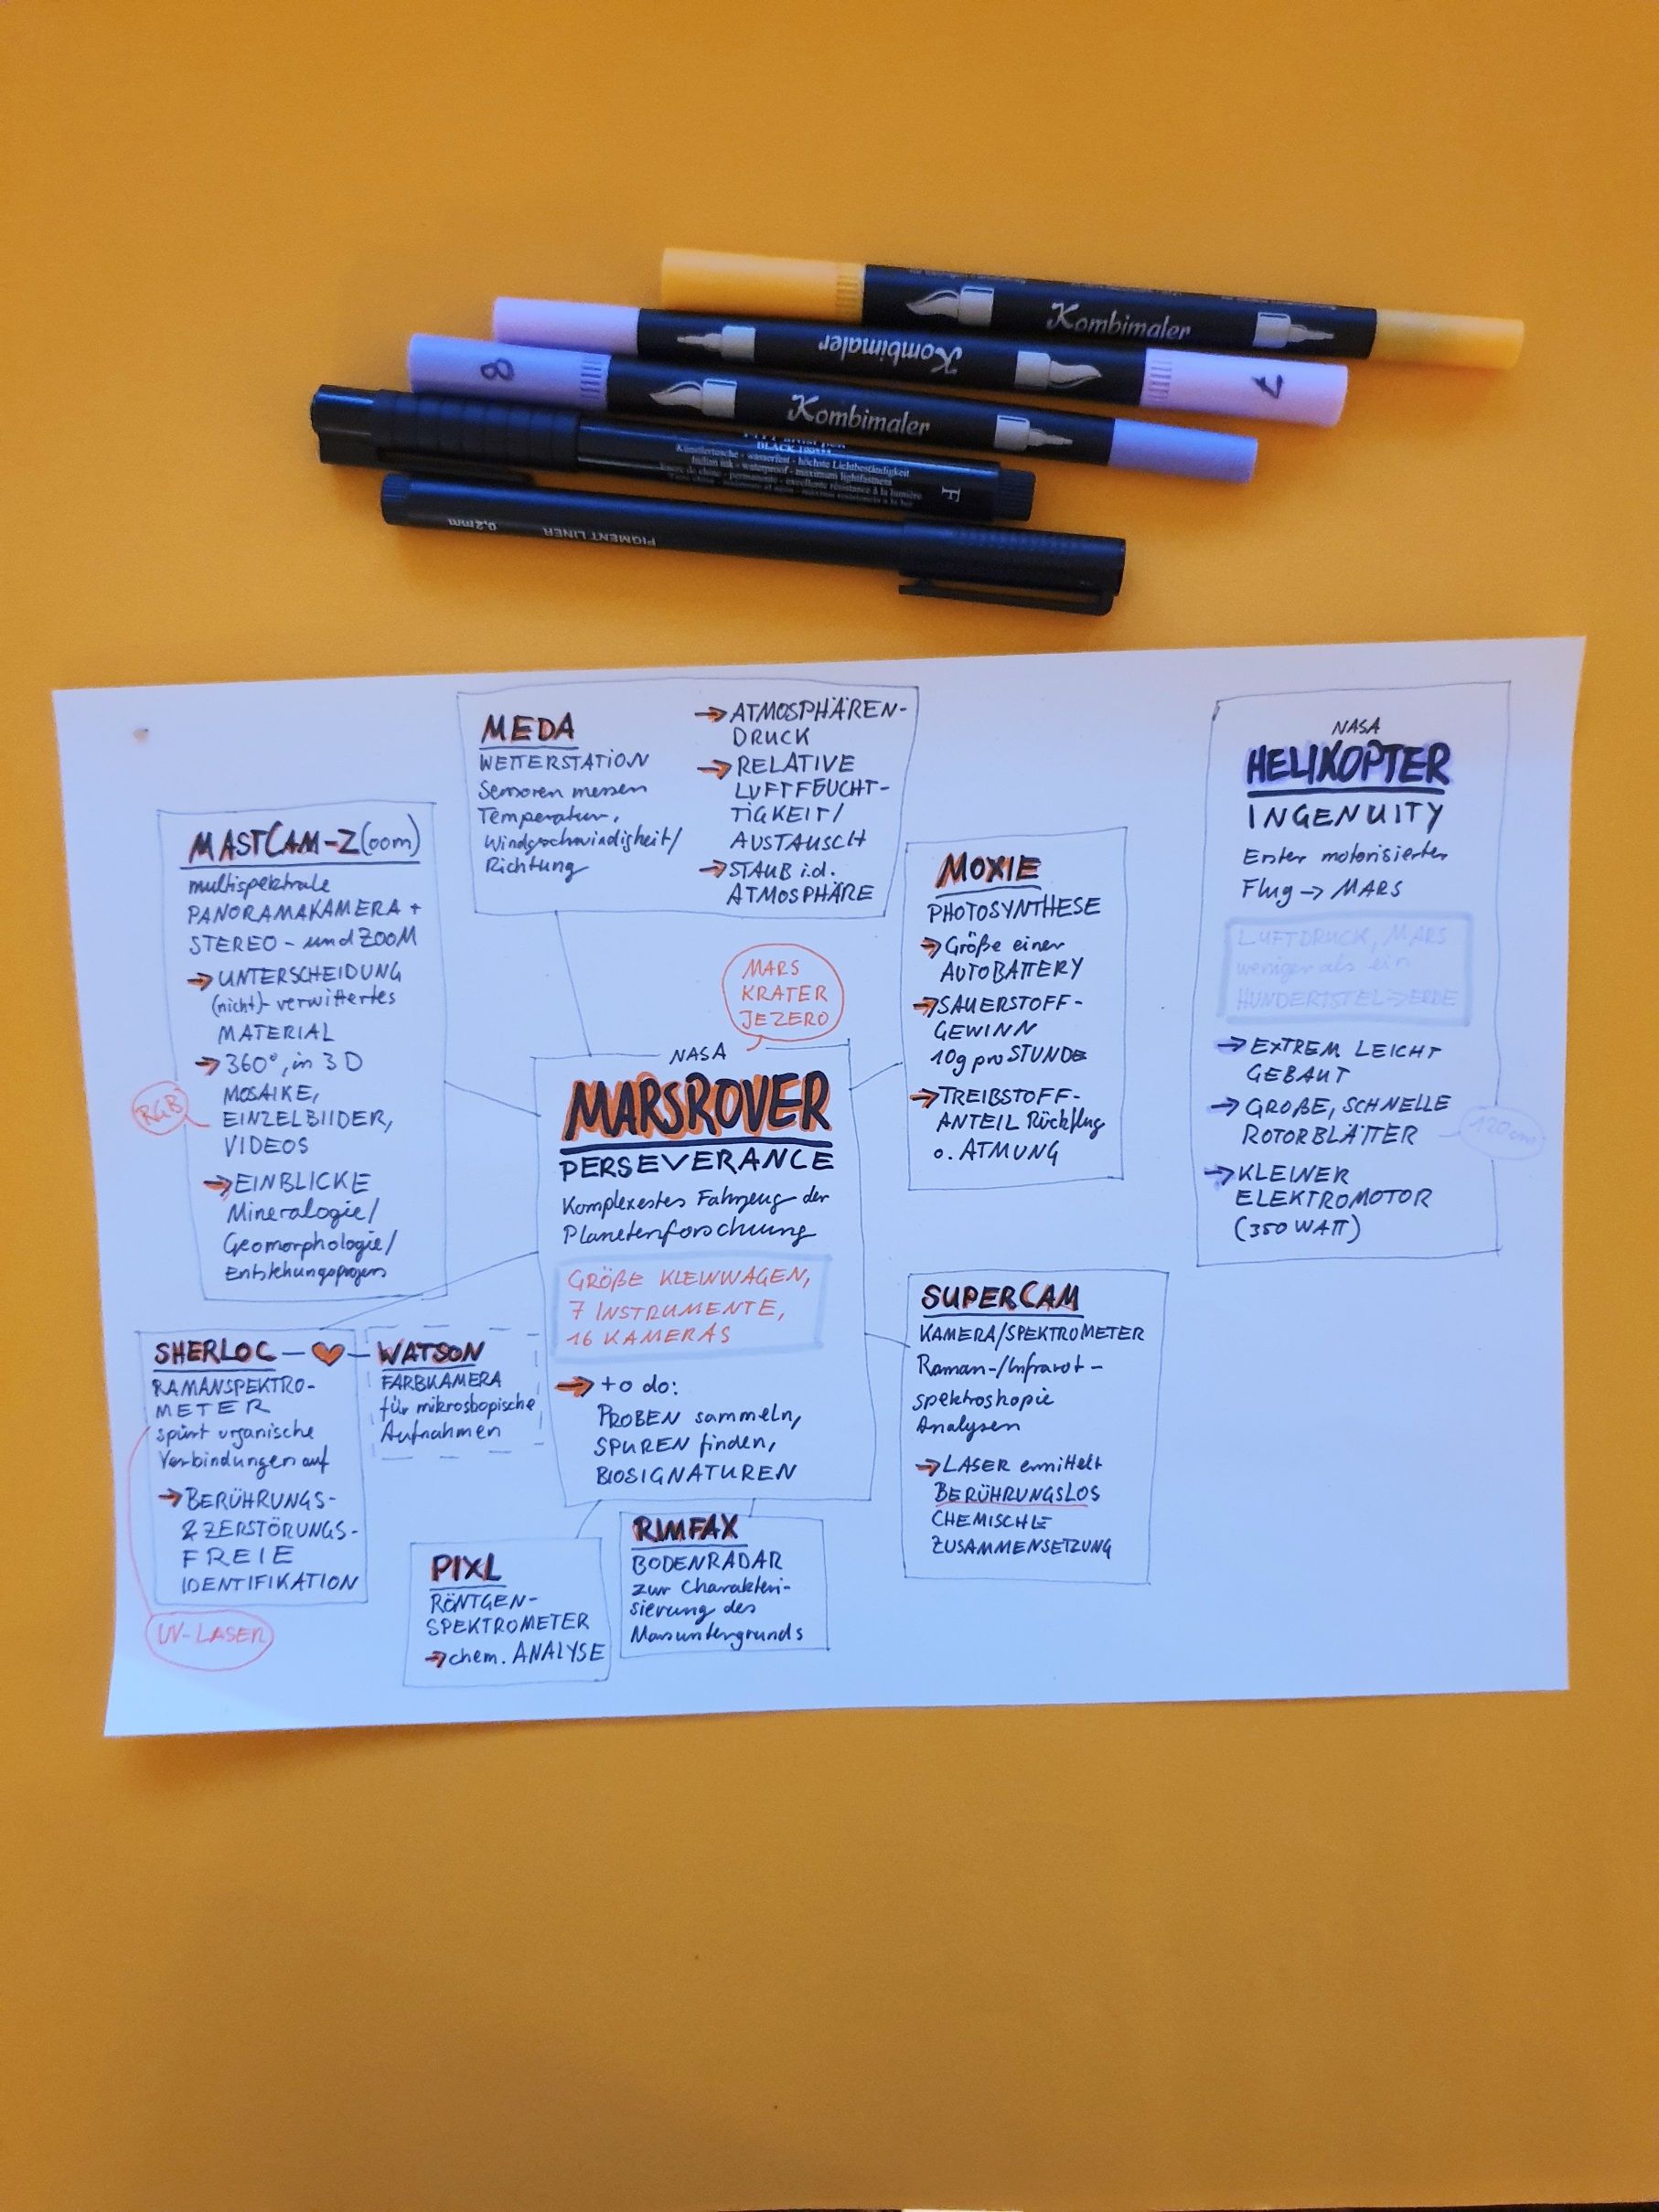 Kombimaler
Kombimaler
7
8
Kombimaler
BLACK 199***
Künstlertusche - wasserfest - höchste Lichtbeständigkeit
Indian ink - waterproof - maximum lightfastness
F
PIGMENT LINER
0,2mm
MEDA
WETTERSTATION
Sensoren messen
Temperatur,
Windgeschwindigkeit/
Richtung
→ ATMOSPHÄREN-
DRUCK
→ RELATIVE
LUFTFEUCHT-
TIGKEIT/
AUSTAUSCH
→ STAUB i.d.
ATMOSPHÄRE
MASTCAM-Z(oom)
multispektrale
PANORAMAKAMERA +
STEREO- und ZOOM
→ UNTERSCHEIDUNG
(nicht)- verwittertes
MATERIAL
→ 360°, in 3D
MOSAIKE,
EINZELBILDER,
VIDEOS
RGB
→ EINBLICKE
Mineralogie/
Geomorphologie/
Entstehungsprozess
MARS
KRATER
JEZERO
NASA
MARSROVER
PERSEVERANCE
Komplexestes Fahrzeug der
Planetenforschung
GRÖßE KLEINWAGEN,
7 INSTRUMENTE,
16 KAMERAS
→ to do:
PROBEN sammeln,
SPUREN finden,
BIOSIGNATUREN
MOXIE
PHOTOSYNTHESE
→ Größe einer
AUTOBATTERY
→ SAUERSTOFF-
GEWINN
10g pro STUNDE
→ TREIBSTOFF-
ANTEIL Rückflug
o. ATMUNG
NASA
HELIKOPTER
INGENUITY
Erster motorisierter
Flug → MARS
LUFTDRUCK, MARS
weniger als ein
HUNDERTSTEL → ERDE
→ EXTREM LEICHT
GEBAUT
→ GROßE, SCHNELLE
ROTORBLÄTTER
120cm
→ KLEINER
ELEKTROMOTOR
(350 WATT)
SHERLOC
RAMANSPEKTRO-
METER
spürt organische
Verbindungen auf
→ BERÜHRUNGS-
& ZERSTÖRUNGS-
FREIE
IDENTIFIKATION
UV-LASER
WATSON
FARBKAMERA
für mikroskopische
Aufnahmen
PIXL
RÖNTGEN-
SPEKTROMETER
→ chem. ANALYSE
RIMFAX
BODENRADAR
zur Charakteri-
sierung des
Marsuntergrunds
SUPERCAM
KAMERA/SPEKTROMETER
Raman-/Infrarot-
spektroskopie
Analysen
→ LASER ermittelt
BERÜHRUNGSLOS
CHEMISCHE
ZUSAMMENSETZUNG